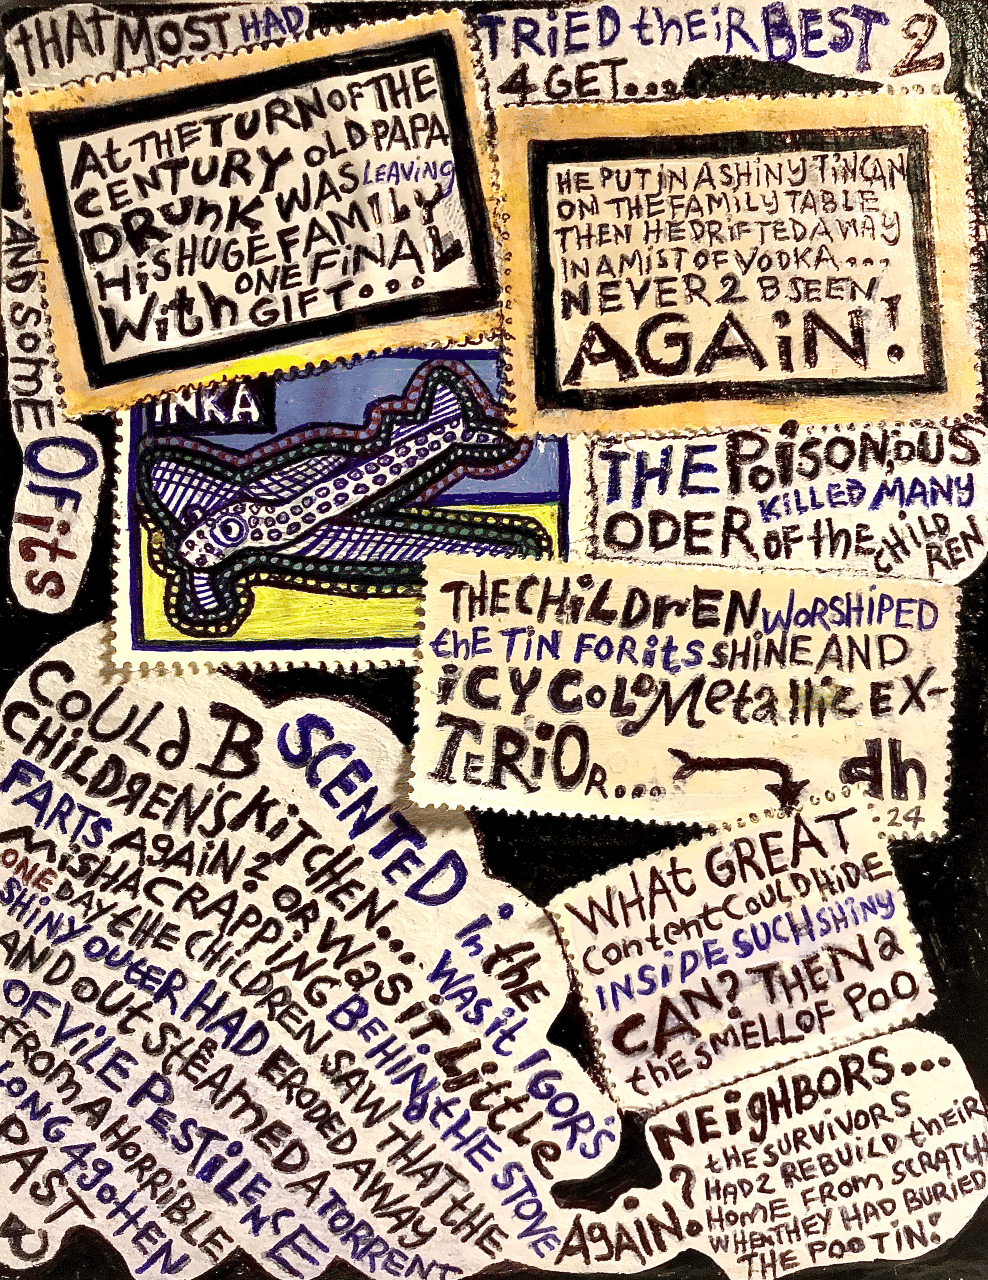 tHAT MOST HAD
TRiED thEiR BEST 2
4 GET...
At THE TURN OF THE
CENTURY OLD PAPA
DRUNK WAS LEAVING
HiS HUGE FAMILY
With ONE FiNAL
GIFT...
HE PUT IN A SHINY TIN CAN
ON THE FAMILY TABLE
THEN HE DRIFTED AWAY
IN A MIST OF VODKA...
NEVER 2 B SEEN
AGAiN!
AND SOME OF its
INKA
THE POISONOUS
ODER KILLED MANY
OF the CHILDREN
THE CHiLDrEN WORSHIPED
thE TIN FOR its SHINE AND
iCY COLD Metallic EX-
TERiOR...
dh
24
WHAt GREAT
content COULD HiDE
INSiDE SUCH SHiNy
CAN? THEN a
the SMELL OF POO
COULd B SCENTED in the
CHiLDREN'S KiTCHEN... WAS it IGOR'S
FARTS AgAiN? OR WaS iT Little
MiSHA CRAPPiNG BEHiND the STOVE AgAiN?
ONE DAY tHE CHiLDREN SAW THAT THE
SHiNY OUTER HAD ERODED AWAY
AND OUT StEAmED A TORRENT
OF ViLE PESTiLENSE
FROM A HORRiBLE
LONG AgOttEN
PAST
NEigHBORS...
tHE SURViVORS
HAD 2 REBUiLD thEiR
HOME FROM SCRATCH
WHEN THEY HAD BURiED
THE POO TiN!